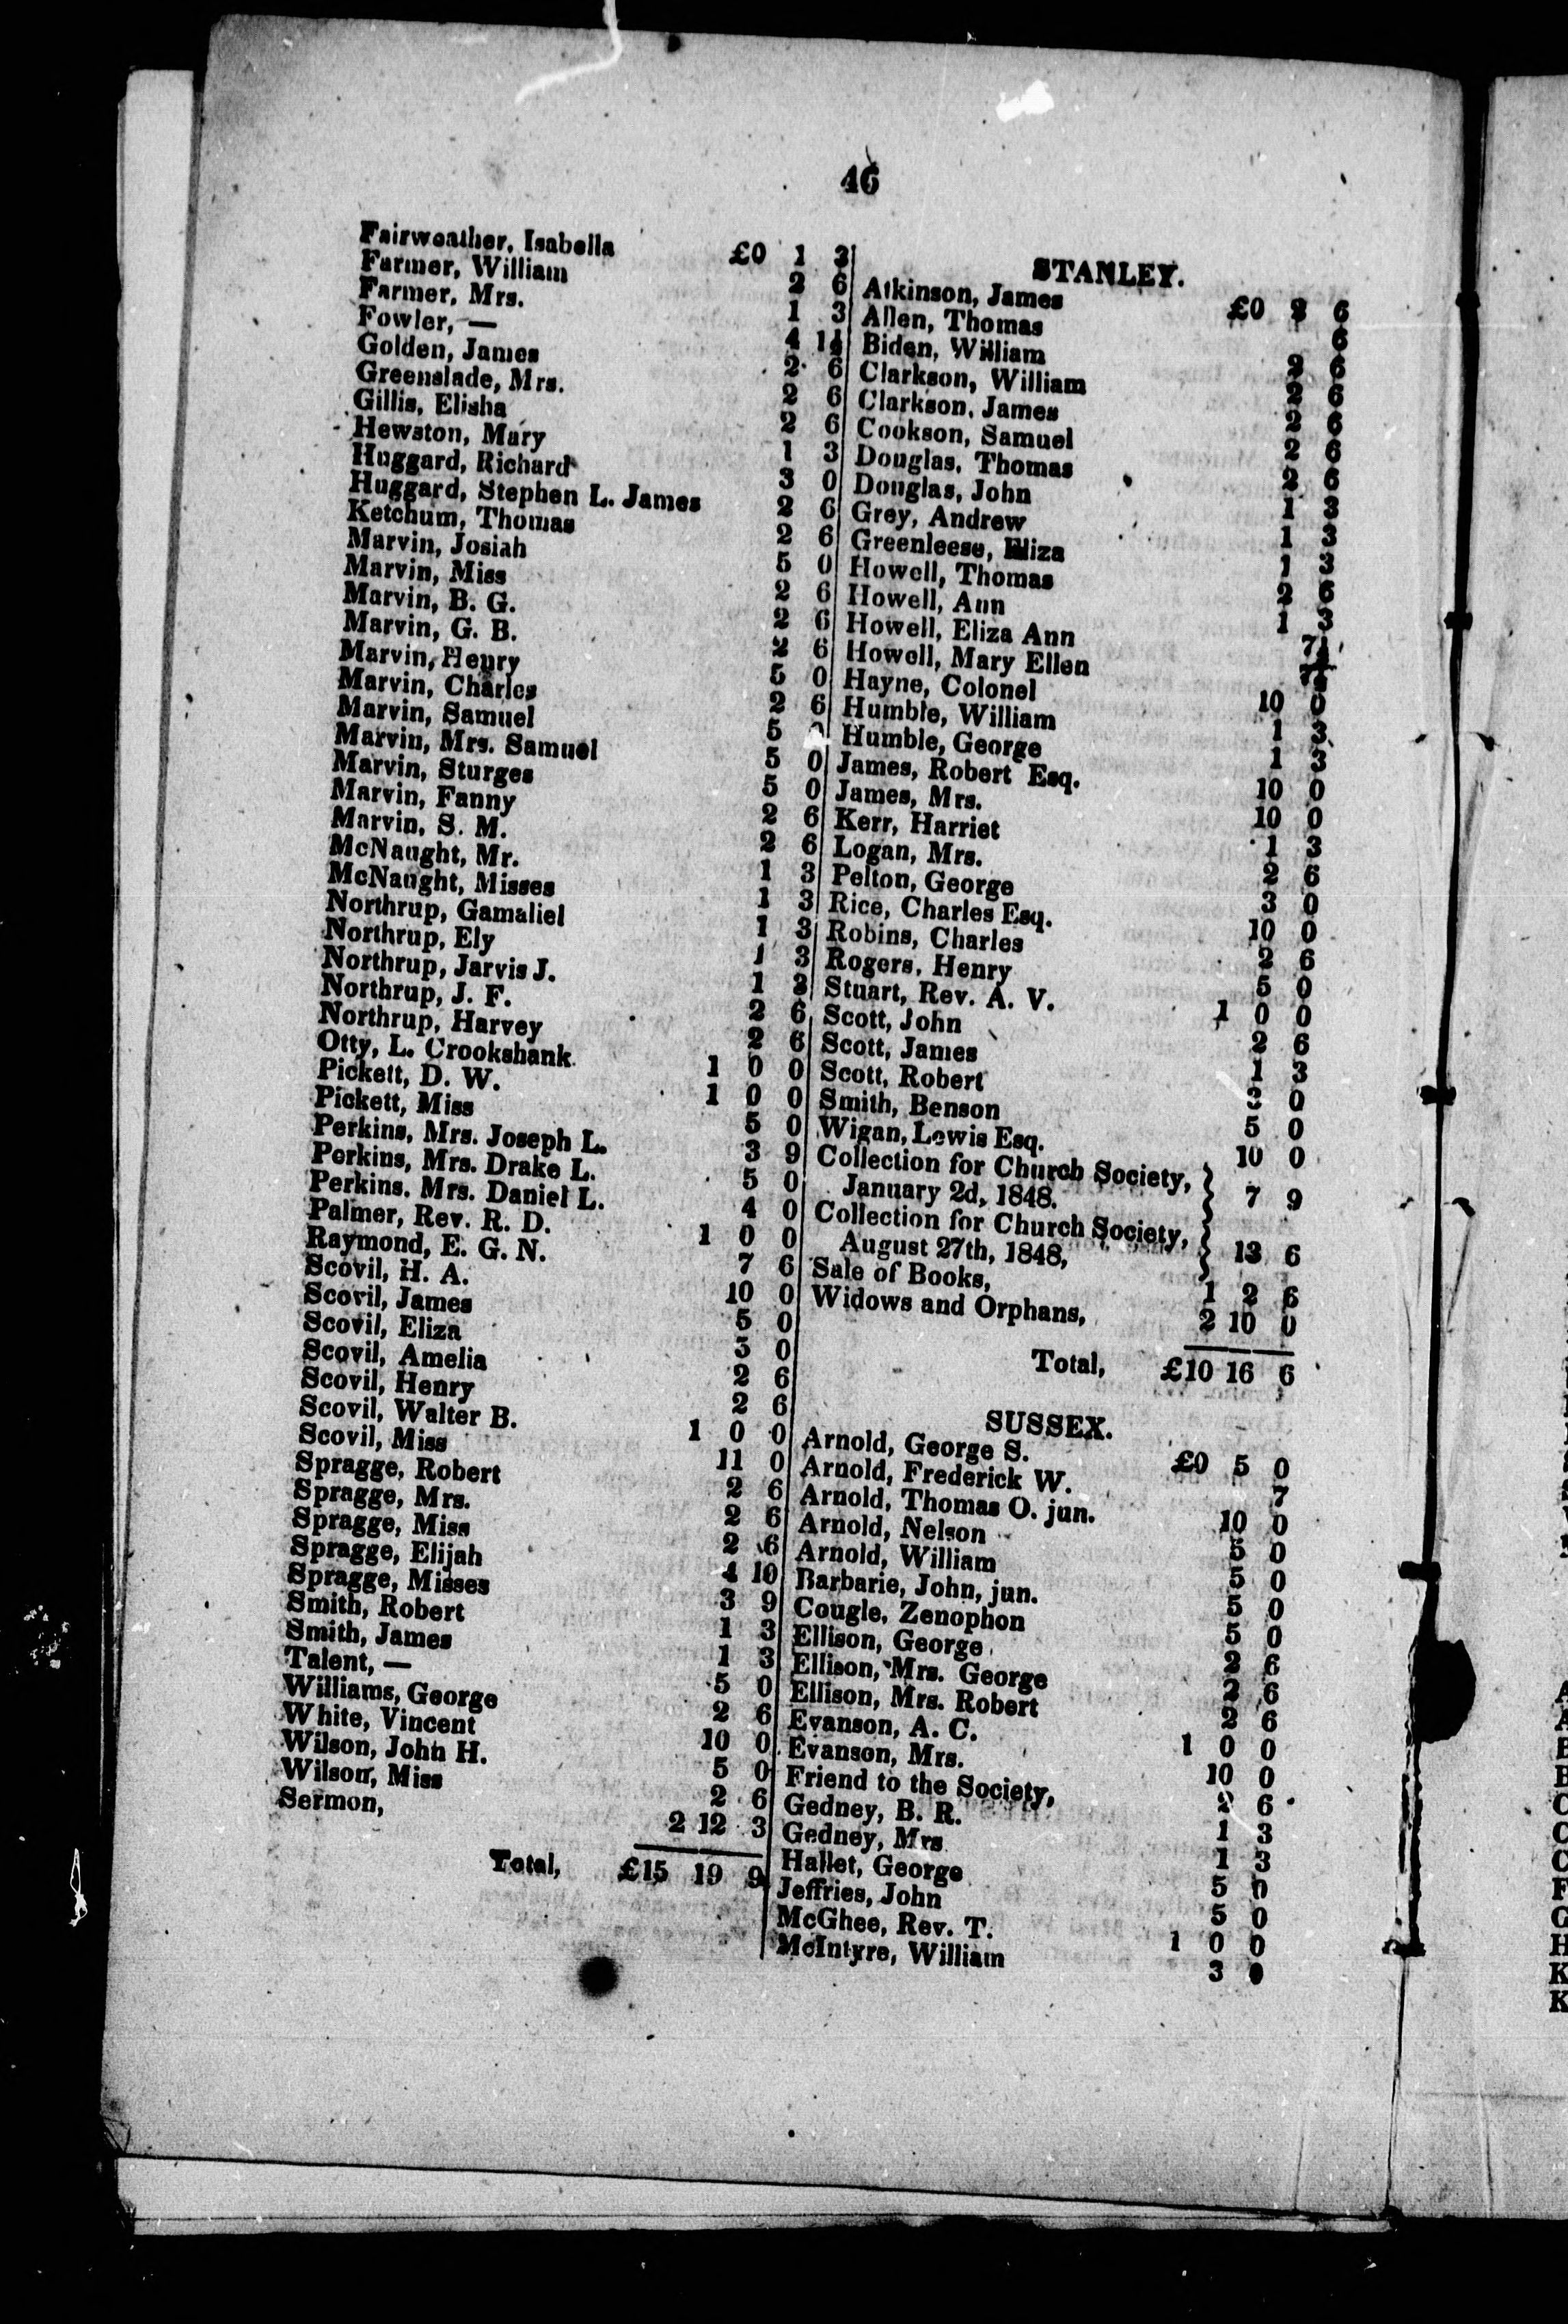 46
Fairweather, Isabella £0 1 3
Farmer, William 2 6
Farmer, Mrs. 1 3
Fowler, — 4 1½
Golden, James 2 6
Greenslade, Mrs. 2 6
Gillis, Elisha 2 6
Hewston, Mary 1 3
Huggard, Richard 3 0
Huggard, Stephen L. James 2 6
Ketchum, Thomas 2 6
Marvin, Josiah 5 0
Marvin, Miss 2 6
Marvin, B. G. 2 6
Marvin, G. B. 2 6
Marvin, Henry 5 0
Marvin, Charles 2 6
Marvin, Samuel 5
Marvin, Mrs. Samuel 5 0
Marvin, Sturges 5 0
Marvin, Fanny 2 6
Marvin, S. M. 2 6
McNaught, Mr. 1 3
McNaught, Misses 1 3
Northrup, Gamaliel 1 3
Northrup, Ely 1 3
Northrup, Jarvis J. 1 3
Northrup, J. F. 2 6
Northrup, Harvey 2 6
Otty, L. Crookshank 1 0 0
Pickett, D. W. 1 0 0
Pickett, Miss 5 0
Perkins, Mrs. Joseph L. 3 9
Perkins, Mrs. Drake L. 5 0
Perkins. Mrs. Daniel L. 4 0
Palmer, Rev. R. D. 1 0 0
Raymond, E. G. N. 7 6
Scovil, H. A. 10 0
Scovil, James 5 0
Scovil, Eliza 3 0
Scovil, Amelia 2 6
Scovil, Henry 2 6
Scovil, Walter B. 1 0 0
Scovil, Miss 11 0
Spragge, Robert 2 6
Spragge, Mrs. 2 6
Spragge, Miss 2 6
Spragge, Elijah 4 10
Spragge, Misses 3 9
Smith, Robert 1 3
Smith, James 1 3
Talent, — 5 0
Williams, George 2 6
White, Vincent 10 0
Wilson, John H. 5 0
Wilson, Miss 2 6
Sermon, 2 12 3
Total, £15 19 9
STANLEY.
Atkinson, James £0 2 6
Allen, Thomas 6
Biden, William 2 6
Clarkson, William 2 6
Clarkson, James 2 6
Cookson, Samuel 2 6
Douglas, Thomas 2 6
Douglas, John 1 3
Grey, Andrew 1 3
Greenleese, Eliza 1 3
Howell, Thomas 2 6
Howell, Ann 1 3
Howell, Eliza Ann 7½
Howell, Mary Ellen 7½
Hayne, Colonel 10 0
Humble, William 1 3
Humble, George 1 3
James, Robert Esq. 10 0
James, Mrs. 10 0
Kerr, Harriet 1 3
Logan, Mrs. 2 6
Pelton, George 3 0
Rice, Charles Esq. 10 0
Robins, Charles 2 6
Rogers, Henry 5 0
Stuart, Rev. A. V. 1 0 0
Scott, John 2 6
Scott, James 1 3
Scott, Robert 3 0
Smith, Benson 5 0
Wigan, Lewis Esq. 10 0
Collection for Church Society,
January 2d, 1848. } 7 9
Collection for Church Society,
August 27th, 1848, } 13 6
Sale of Books, 1 2 6
Widows and Orphans, 2 10 0
Total, £10 16 6
SUSSEX.
Arnold, George S. £0 5 0
Arnold, Frederick W. 7
Arnold, Thomas O. jun. 10 0
Arnold, Nelson 5 0
Arnold, William 5 0
Barbarie, John, jun. 5 0
Cougle, Zenophon 5 0
Ellison, George 2 6
Ellison, Mrs. George 2 6
Ellison, Mrs. Robert 2 6
Evanson, A. C. 1 0 0
Evanson, Mrs. 10 0
Friend to the Society, 2 6
Gedney, B. R. 1 3
Gedney, Mrs 1 3
Hallet, George 5 0
Jeffries, John 5 0
McGhee, Rev. T. 1 0 0
McIntyre, William 3 0